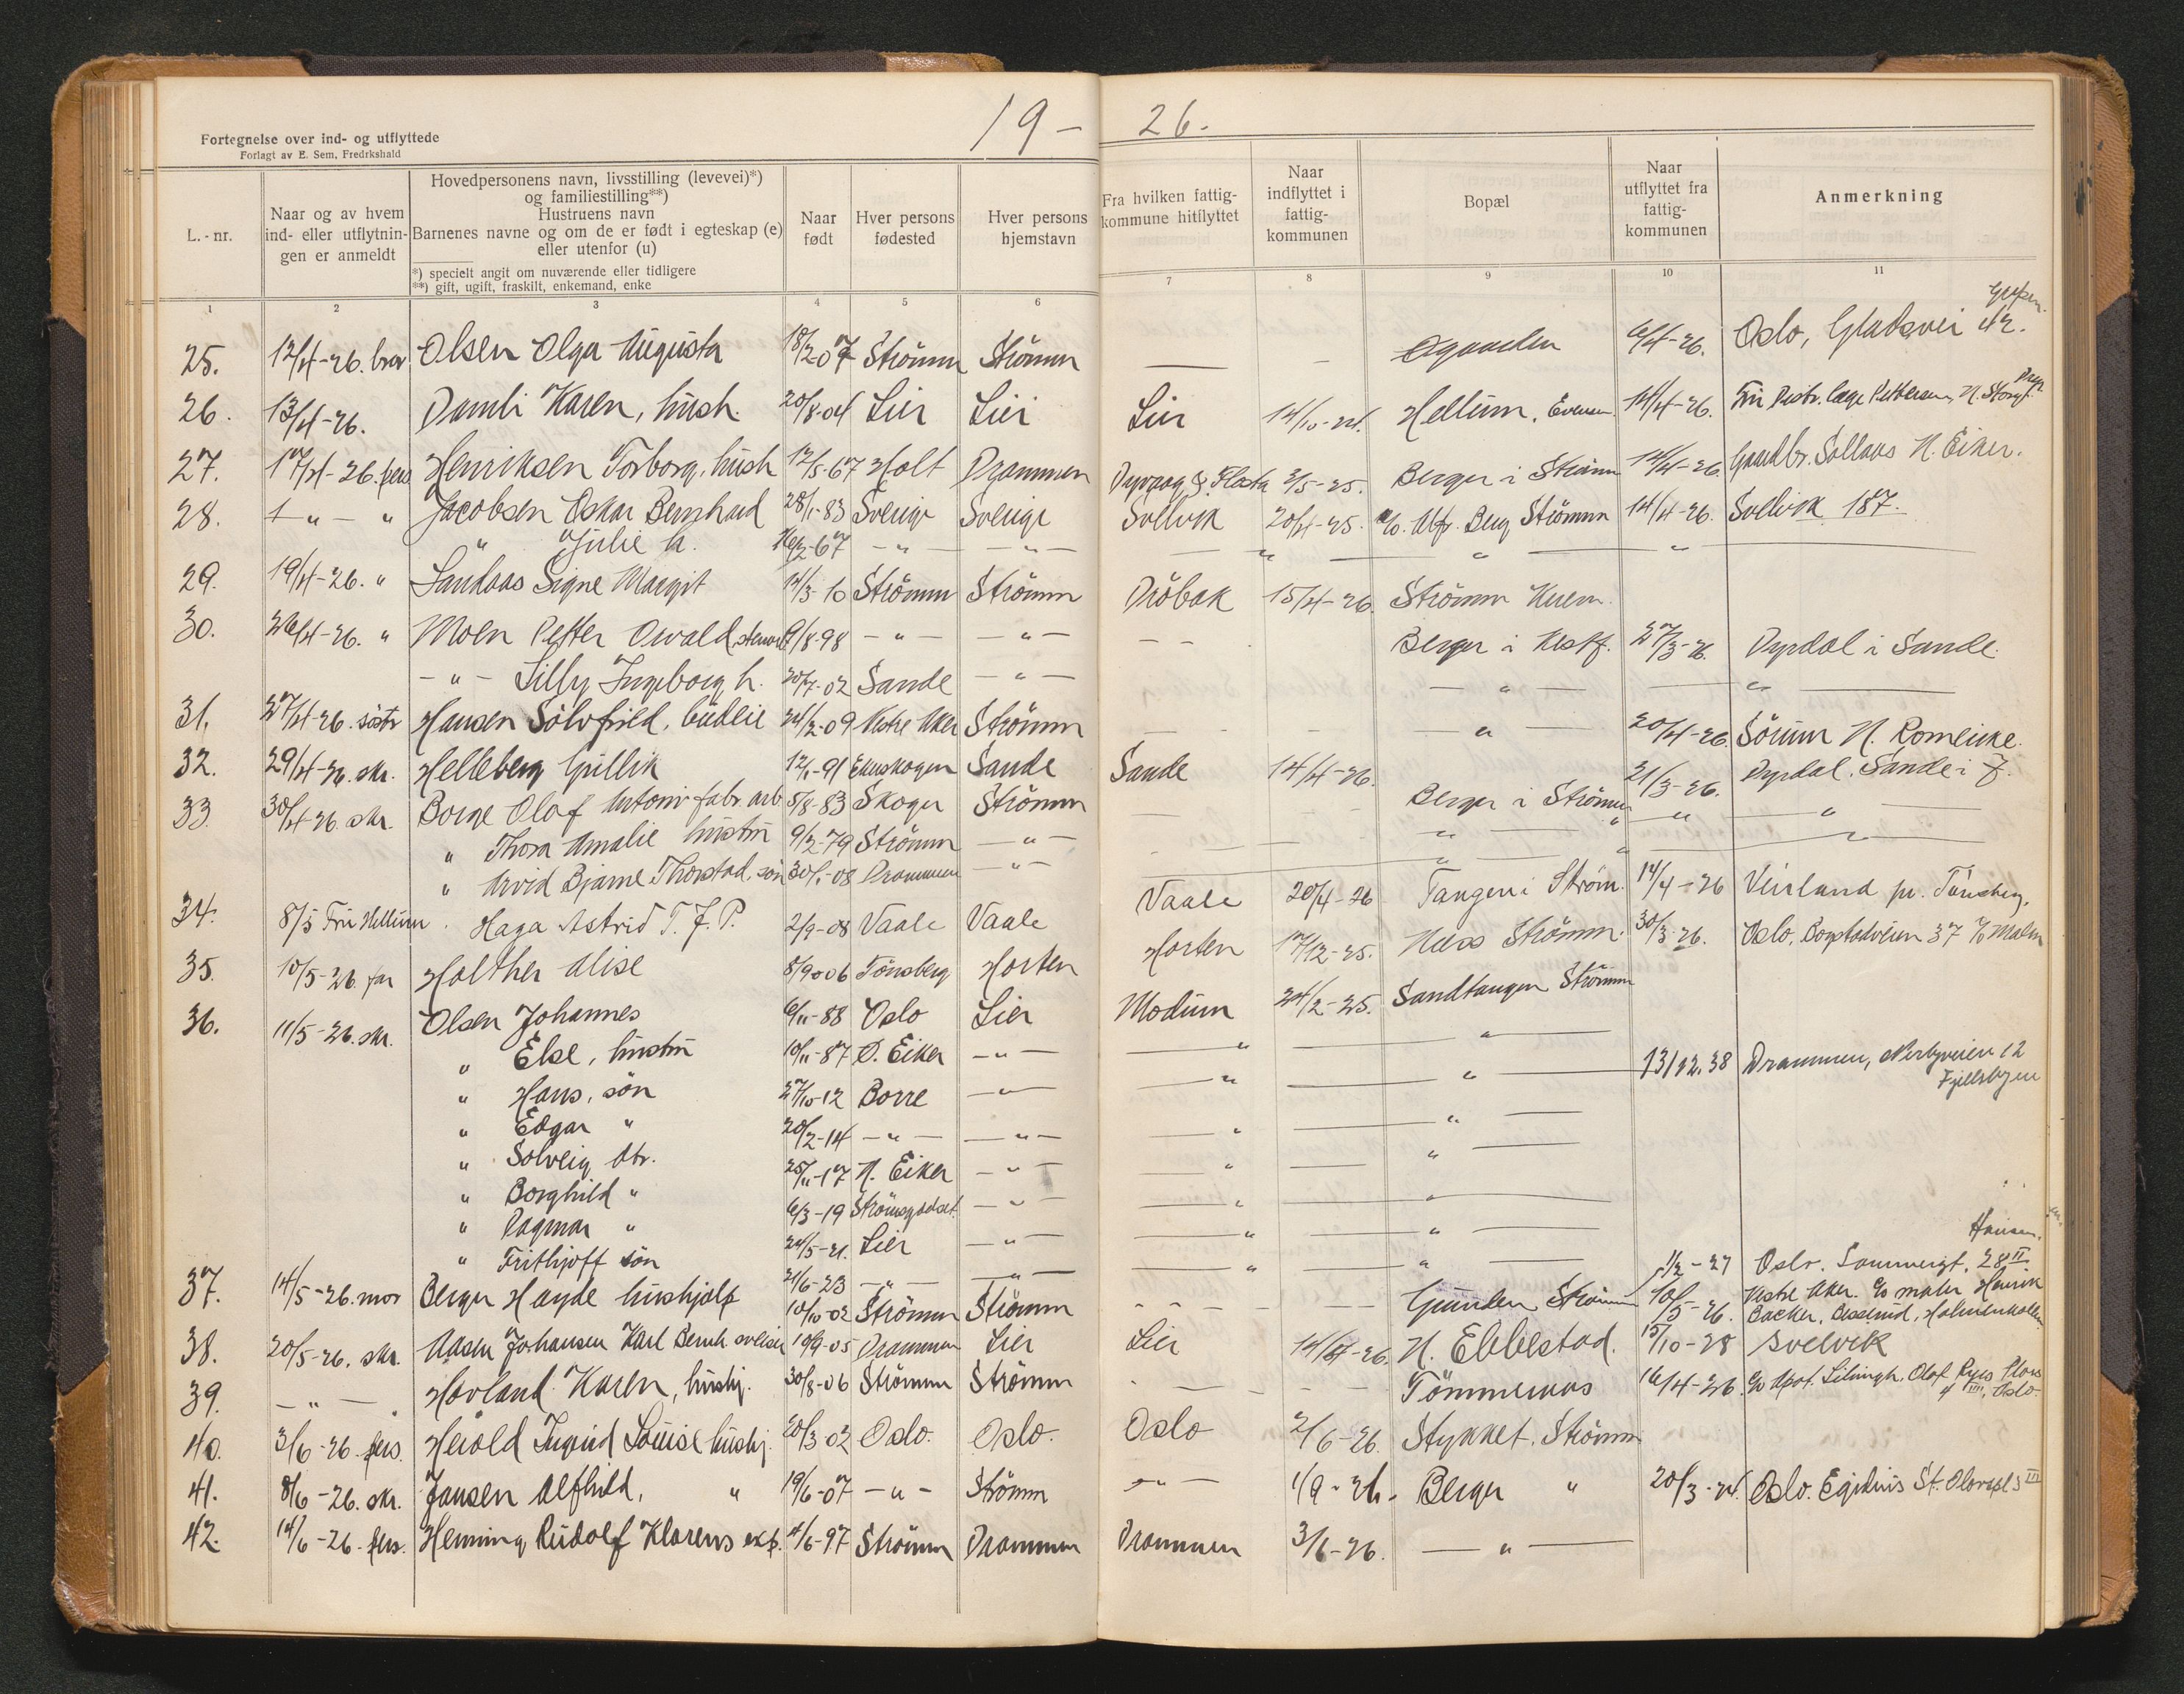 19 - 26.
Fortegnelse over ind- og utflyttede
Forlagt av E. Sem, Fredrkshald
L.-nr. | Naar og av hvem ind- eller utflytningen er anmeldt | Hovedpersonens navn, livsstilling (levevei)*) og familiestilling**) Hustruens navn Barnenes navne og om de er født i egteskap (e) eller utenfor (u) *) specielt angit om nuværende eller tidligere **) gift, ugift, fraskilt, enkemand, enke | Naar født | Hver persons fødested | Hver persons hjemstavn | Fra hvilken fattigkommune hitflyttet | Naar indflyttet i fattigkommunen | Bopæl | Naar utflyttet fra fattigkommunen | Anmerkning
1 | 2 | 3 | 4 | 5 | 6 | 7 | 8 | 9 | 10 | 11
25. | 12/4-26. bror | Olsen Olga Augusta | 18/2-07 | Strömm | Strömm | — | – | | 6/4-26. | Oslo, 42.
26. | 13/4-26. | Damli Karen, hush. | 20/8-04 | Lier | Lier | Lier | 14/10-24. | Hellum, Evensen | 14/4-26. | Fru Distr. læge Pettersen, N. Storgt.
27. | 17/4-26. pers | Henriksen Torborg, hush | 12/5-67 | Holt | Drammen | Dypvag & Flosta | 2/5-25. | Berger i Strömm | 14/4-26. | Gaardbr. Sollaas N. Eiker.
28. | — " — " | Jacobsen Oskar Bernhard | 28/1-83 | Sverige | Sverige | Svelvik | 20/4-25. | c/o. Alfr. Berg Strömm | 14/4-26. | Svelvik 187.
" Julie h. | 16/2-67 | — " — | — " — | — " — | " | "
29. | 19/4-26. " | Sandaas Signe Margit | 14/3-10 | Strömm | Strömm | Dröbak | 15/4-26. | Strömm
30. | 26/4-26. " | Moen Petter Osvald | 9/8-98 | — " — | — " — | – – | | Berger i Vestf. | 27/3-26. | Dyrdal i Sande.
— " — Lilly Ingeborg h. | 20/7-02 | Sande | — " — | | | — " — | — " —
31. | 27/4-26. søstr | Hansen Sölvfrid, budeie | 24/2-09 | Vestre Aker | Strömm | — | – | — " — | 20/4-26. | Sörum N. Romerike.
32. | 29/4-26. skr. | Helleberg Gullik | 12/1-91 | Ekneskogen | Sande | Sande | 14/4-26.
33. | 30/4-26. skr. | Borge Olaf Antoni fabr. arb | 5/8-83 | Skoger | Strömm | — | – | Berger i Strömm | 21/3-26. | Dyrdal, Sande i J.
" Thora Amalie hustru | 9/2-79 | Strömm | — " — | | | " | " | — " —
" Arvid Bjarne Thorstad, sön | 30/1-08 | Drammen | — " — | | | " | " | — " —
34. | 8/5 Fru Hellum | Haga Astrid T. J. P. | 2/9-08 | Vaale | Vaale | Vaale | 20/4-26 | Tangen i Ström. | 14/4-26 | Veirland pr. Tönsberg.
35. | 10/5-26. far | Holther Alise | 8/9-06 | Tönsberg | Horten | Horten | 17/12-25. | Ness Strömm. | 30/3-26. | Oslo, Bogstadveien 37 c/o Malm
36. | 11/5-26. skr. | Olsen Johannes | 6/11-88 | Oslo | Lier | Modum | 24/2-25. | Sandtangen Strömm
" Else, hustru | 10/11-87 | Ö. Eiker | — " — | — " — | | — " —
" Hans, sön | 27/10-12 | Borre | — " — | — " — | | — " — | 13/12.38 | Drammen, Nerbyveien 12 Fjellsbyen
" Edgar " | 20/2-14 | — " — | — " — | — " — | | — " —
" Solveig dtr. | 25/11-17 | N. Eiker | — " — | — " — | | — " —
" Borghild " | 6/3-19 | Strömsgodset | — " — | — " — | | — " —
" Dagmar " | 24/5-21. | Lier | — " — | — " — | | — " —
" Frithjoff sön | 21/6-23 | — " — | — " — | — " — | | — " — | 1/2-27 | Oslo. Sommergt. 28 II Hansen.
37. | 14/5-26. mor | Berger Hayde hushjelp | 10/10-02 | Strömm | Strömm | – – – | – – – | Grunden Strömm | 10/5-26. | Vestre Aker. c/o maler Henrik Backer, Besserud, Holmenkollen
38. | 20/5-26. skr. | Johansen Karl Bernh. | 10/9-05 | Drammen | Lier | Lier | 14/4-26. | N. Ebbestad. | 15/10-28 | Svelvik
39. | — " — | Hovland Karen, hushj. | 30/8-06 | Strömm | Strömm | – – – | – – | Tömmeraas | 16/4-26. | c/o Apot. Olaf Ryes Plass 4 III, Oslo.
40. | 3/6-26. pers. | Herold Ingrid Louise hushj. | 20/3-02 | Oslo. | Oslo. | Oslo | 2/6-26. | Stykket. Strömm
41. | 8/6-26. skr. | Jansen Alfhild, " | 19/6-07 | — " — | Strömm | — " — | 1/9-24. | Berger " | 20/3-24. | Oslo. Egidius St. Olavspl 3 III
42. | 14/6-26. pers. | Henning Rudolf Klarens exp. | 4/6-97 | Strömm | Drammen | Drammen | 3/6-26. | — " —